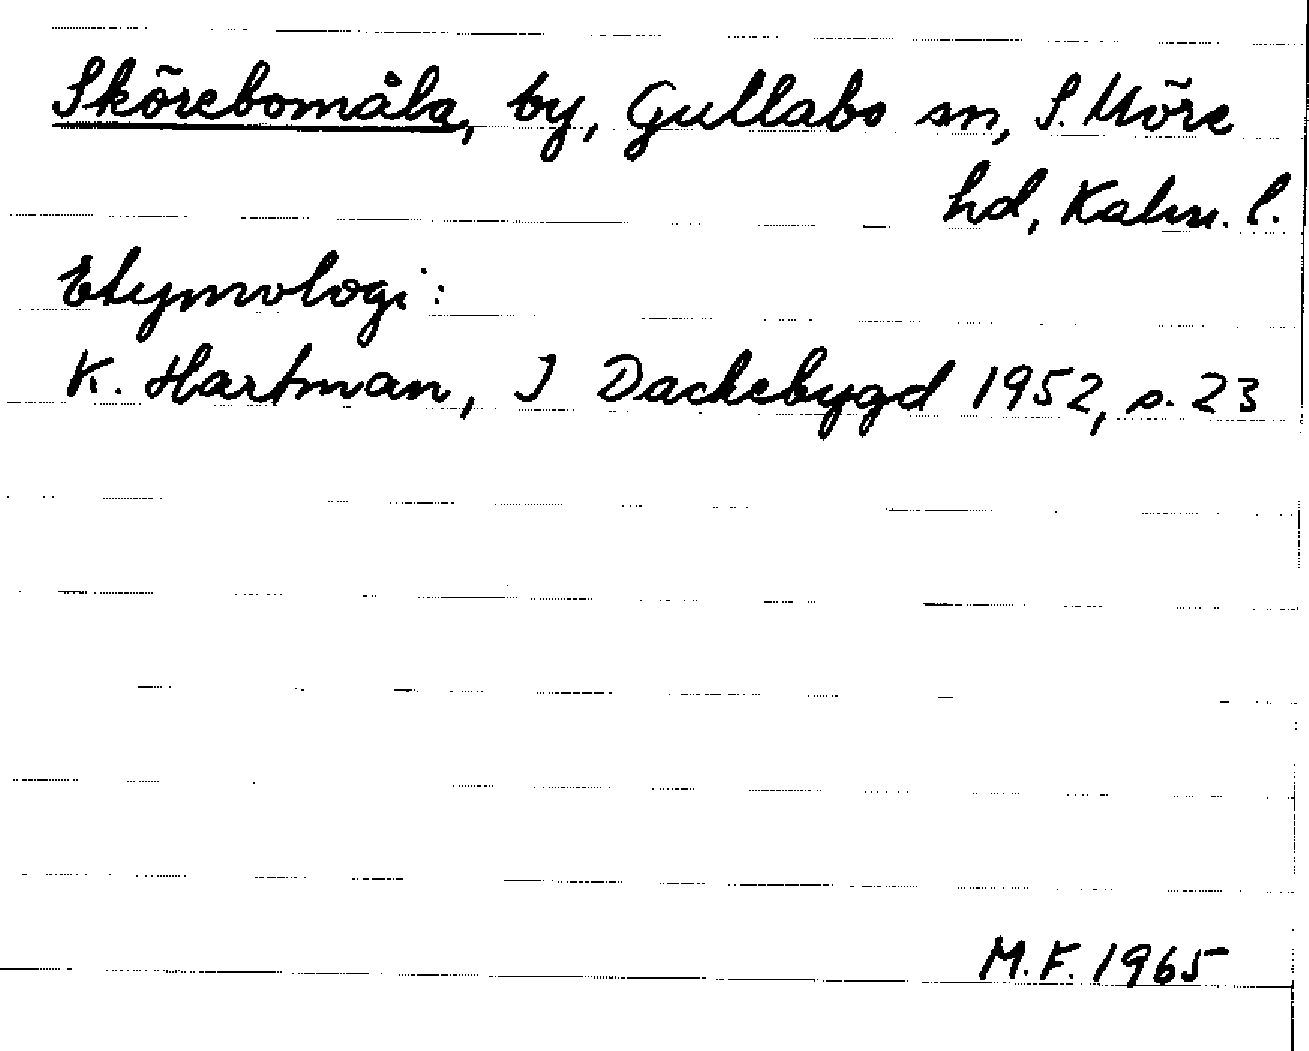 Skörebomåla, by, Gullabo sn, S. Möre
hd, Kalm. l.
Etymologi:
K. Hartman, I Dackebygd 1952, s. 23
M.F. 1965